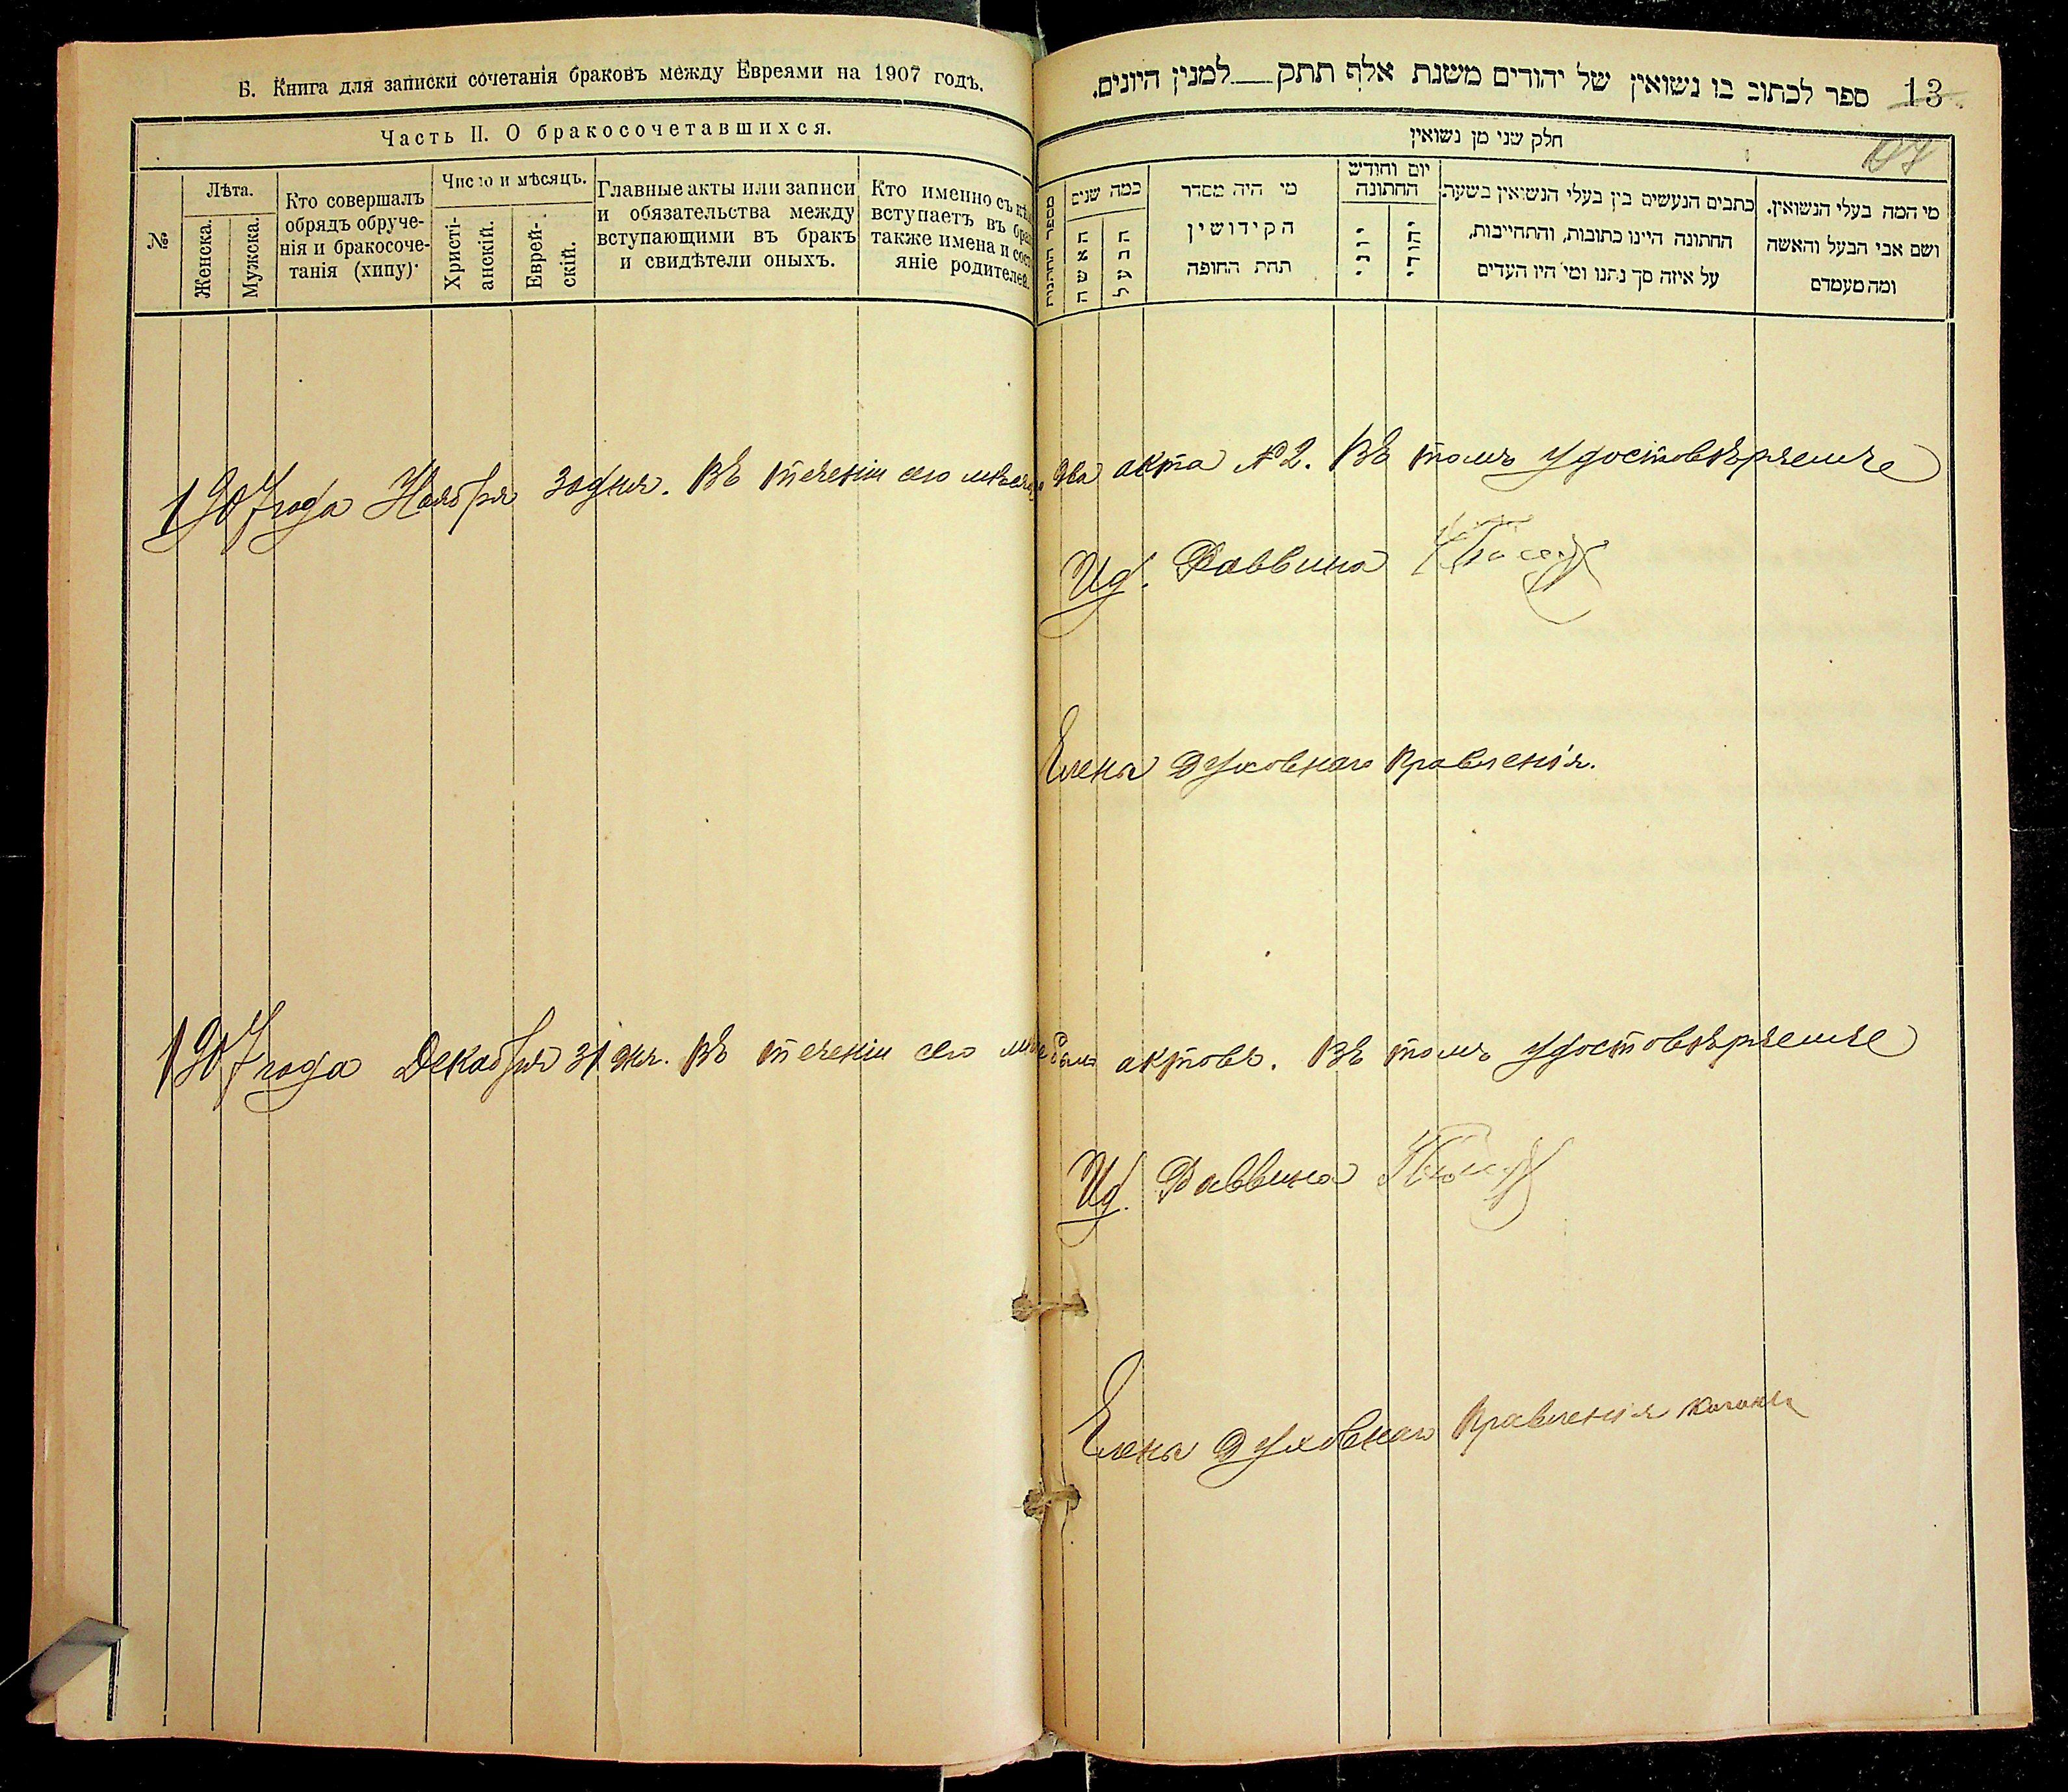 Б. Книга для записки сочетанія браковъ между Евреями на 1907 годъ.
Часть II. О бракосочетавшихся.
№
Лѣта.
Женска.
Мужска.
Кто совершалъ
обрядъ обруче-
нія и бракосоче-
танія (хипу)
Число и мѣсяцъ.
Христі-
анскій.
Еврей-
скій.
Главные акты или записи
и обязательства между
вступающими въ бракъ
и свидѣтели оныхъ.
Кто именно съ
вступаетъ въ
также имена и
яніе родителей.
13
ספר לכתוב בו נשואין של יהודים משנת אלף תתק למנין היונים.
חלק שני מן נשואין
מספר החתונות
כמה שנים
האשה
הבעל
מי היה מסדר
הקידושין
תחת החופה
יום וחודש
החתונה
יוני
יהודי
כתבים הנעשים בין בעלי הנשואין בשעת
החתונה היינו כתובות, והתחייבות,
על איזה סך נתנו ומי היו העדים
מי המה בעלי הנשואין,
ושם אבי הבעל והאשה
ומה מעמדם
1907 года Ноября 30 дня. Въ теченіи сего два акта №2. Въ томъ удостовѣряемъ
Ид. Раввина
Члены Духовнаго Правленія.
1907 года Декабря 31 дня. Въ теченіи сего актовъ. Въ томъ удостовѣряемъ
Ид. Раввина
Члены Духовнаго Правленія